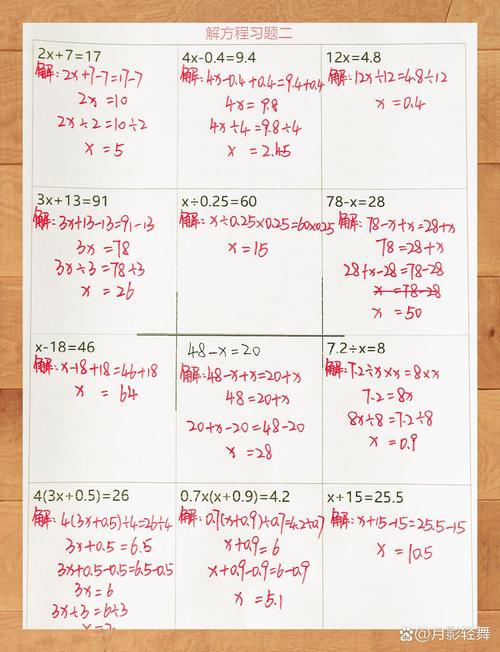 解方程习题二
2x+7=17
解:2x+7-7=17-7
2x=10
2x÷2=10÷2
x=5
4x-0.4=9.4
解:4x-0.4+0.4=9.4+0.4
4x=9.8
4x÷4=9.8÷4
x=2.45
12x=4.8
解:12x÷12=4.8÷12
x=0.4
3x+13=91
解:3x+13-13=91-13
3x=78
3x÷3=78÷3
x=26
x÷0.25=60
解:x÷0.25×0.25=60×0.25
x=15
78-x=28
解:78-x+x=28+x
78=28+x
28+x-28=78-28
x=78-28
x=50
x-18=46
解:x-18+18=46+18
x=64
48-x=20
解:48-x+x=20+x
48=20+x
20+x-20=48-20
x=28
7.2÷x=8
解:7.2÷x×x=8×x
7.2=8x
8x÷8=7.2÷8
x=0.9
4(3x+0.5)=26
解:4(3x+0.5)÷4=26÷4
3x+0.5=6.5
3x+0.5-0.5=6.5-0.5
3x=6
3x÷3=6÷3
x=2
0.7x(x+0.9)=4.2
解:0.7(x+0.9)÷0.7=4.2÷0.7
x+0.9=6
x+0.9-0.9=6-0.9
x=5.1
x+15=25.5
解:x+15-15=25.5-15
x=10.5
@月影轻舞